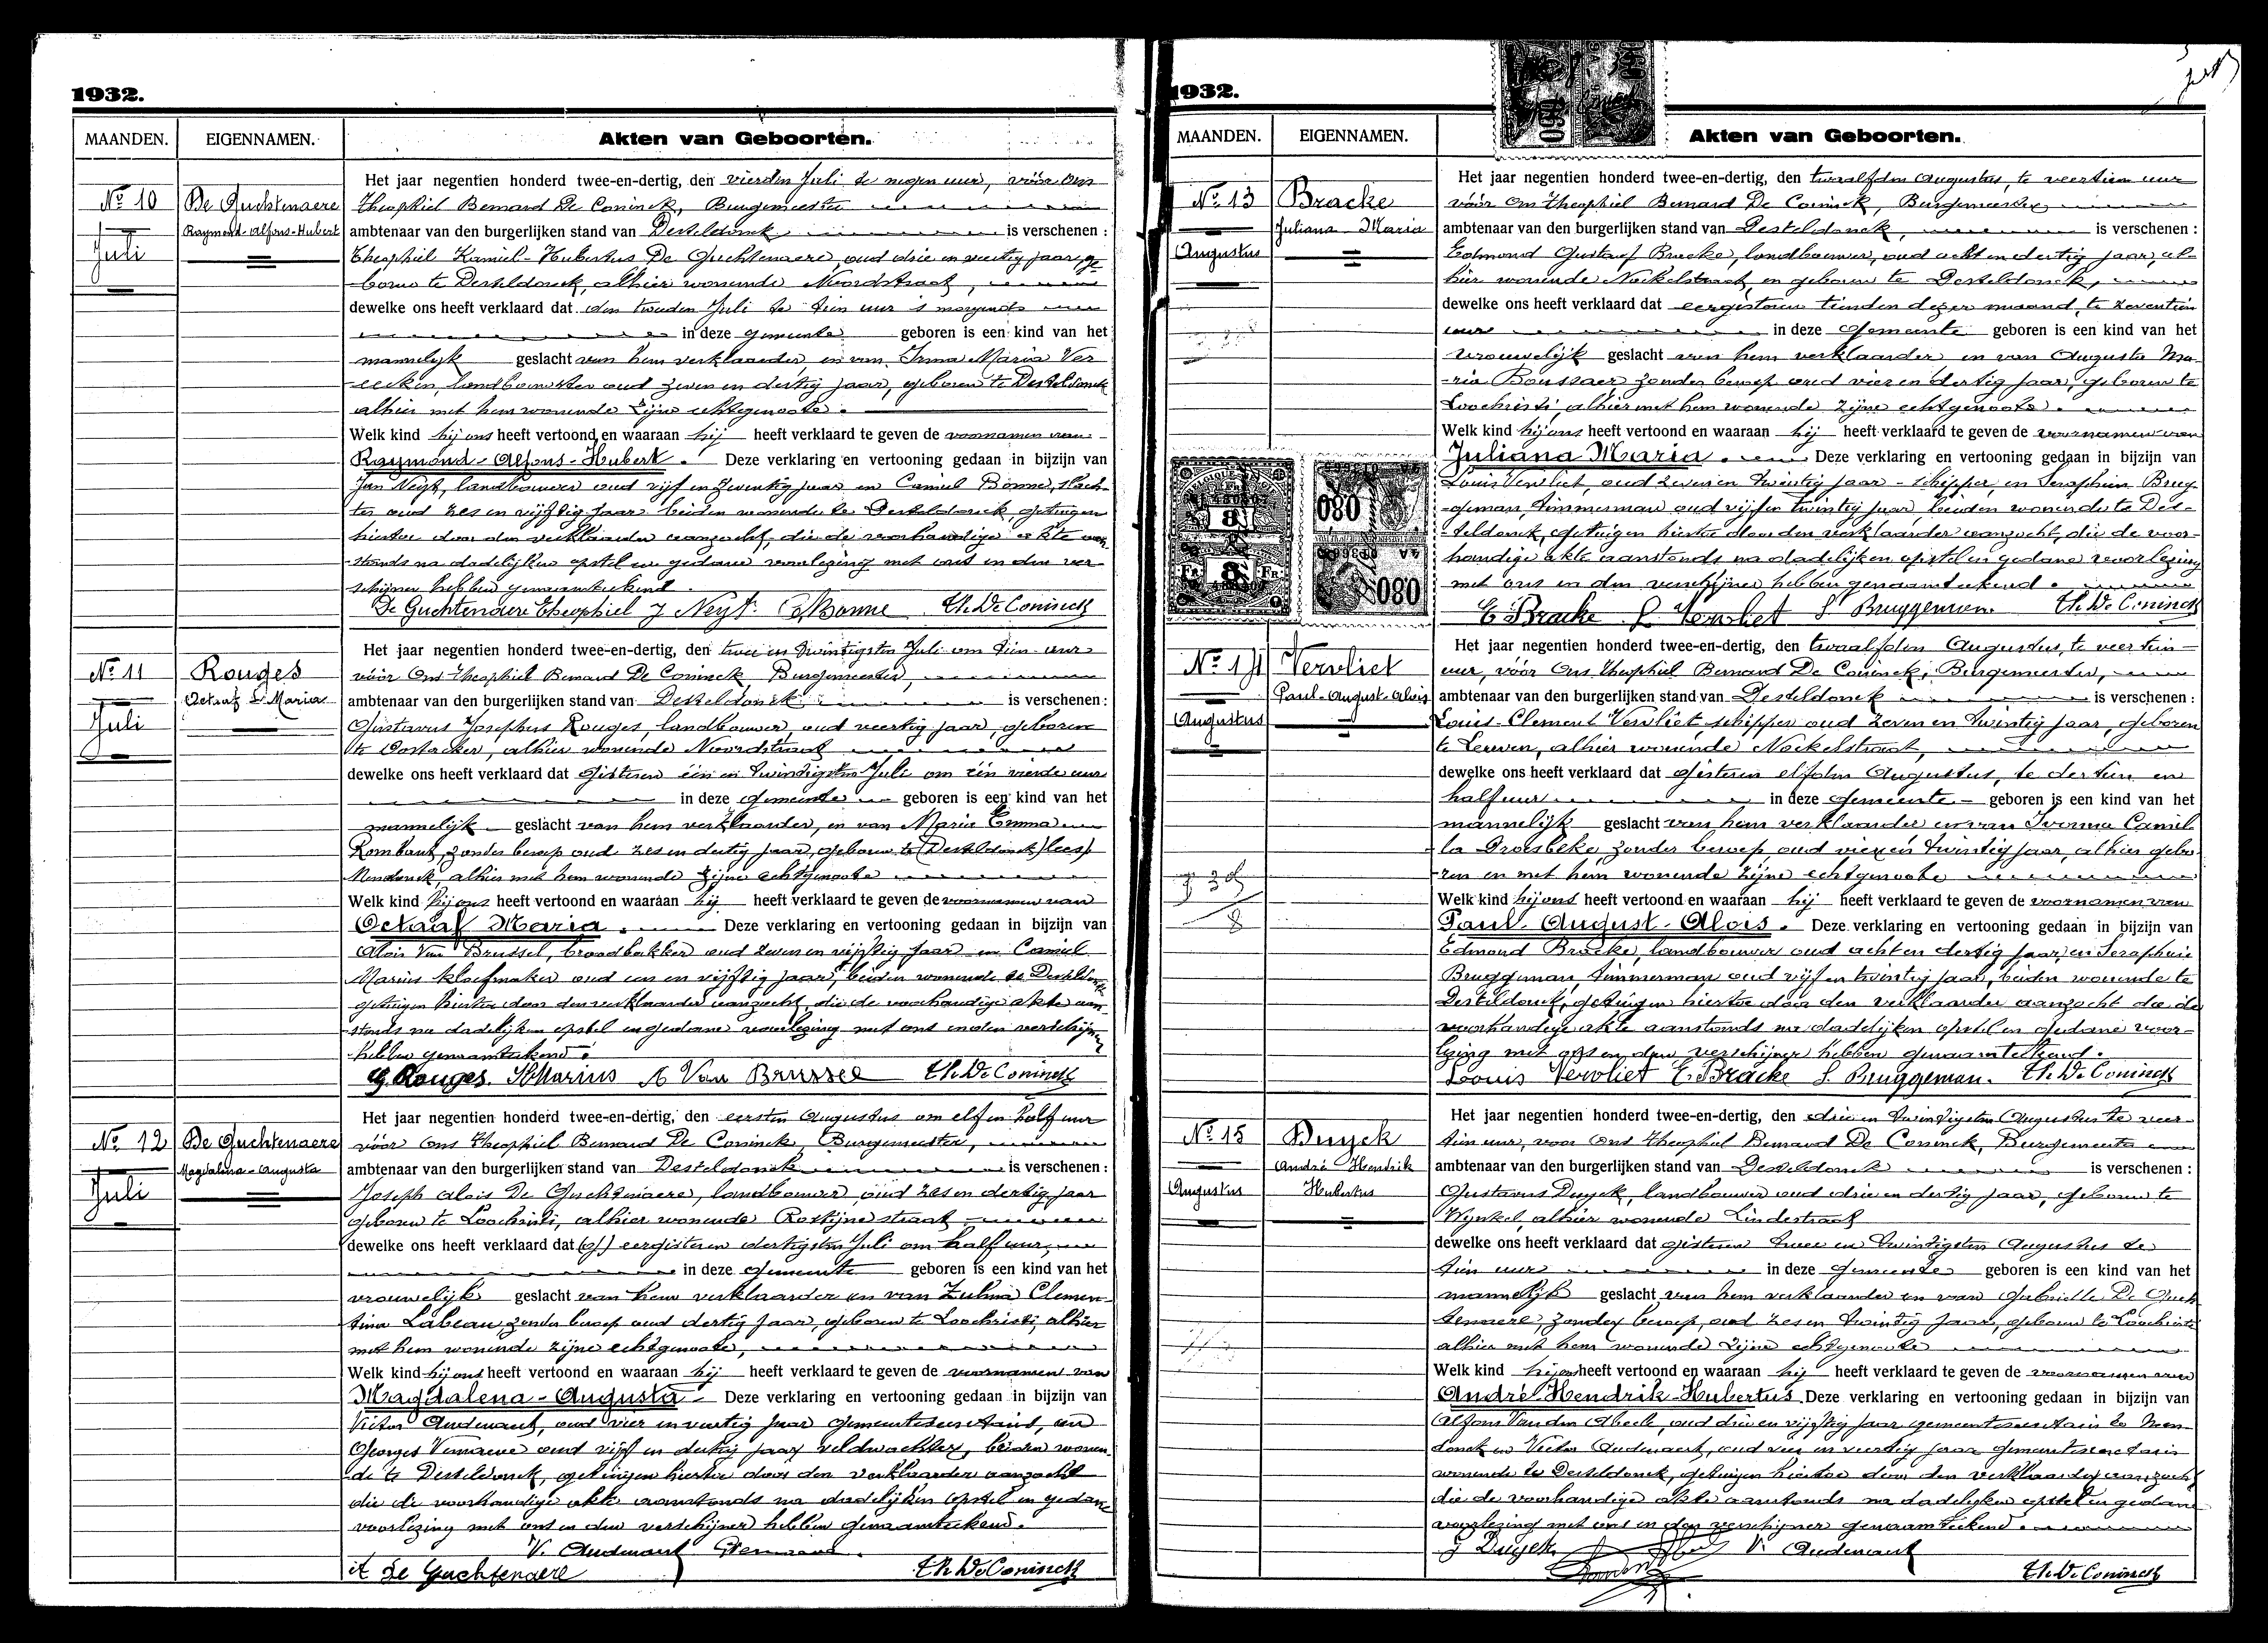 1932.
MAANDEN.
EIGENNAMEN.
Akten van Geboorten.
Nº 10
Juli
De Guchtenaere
Raymond-Alfons-Hubert
Het jaar negentien honderd twee-en-dertig, den vierden Juli te negen uur, vóór Ons
Theophiel Bernard De Coninck, Burgemeester
ambtenaar van den burgerlijken stand van Desteldonck is verschenen :
Theophiel Kamiel-Hubertus De Guchtenaere, oud drie en veertig jaar, ge-
boren te Desteldonck, alhier wonende Noordstraat,
dewelke ons heeft verklaard dat den tweeden Juli te tien uur 's morgends
in deze gemeente geboren is een kind van het
mannelijk geslacht van hem verklaarder, en van Irma Maria Ver
eecken, landbouwster oud zeven en dertig jaar, geboren te Desteldonck
alhier met hem wonende zijne echtgenoote.
Welk kind hij ons heeft vertoond en waaraan hij heeft verklaard te geven de voornamen van
Raymond-Alfons-Hubert. Deze verklaring en vertooning gedaan in bijzijn van
Jan Neyt, landbouwer oud vijf en zeventig jaar en Camiel Bonne, slach-
ter oud zes en vijftig jaar beiden wonende te Desteldonck, getuigen
hiertoe door den verklaarder aanzocht, die de voorhandige akte aan-
stonds na dadelijken opstel en gedane voorlezing met ons en den ver-
schijner hebben genaamteekend.
De Guchtenaere Theophiel J Neyt C Bonne Th. De Coninck
Nº 11
Juli
Rouges
Octaaf Maria
Het jaar negentien honderd twee-en-dertig, den twee en twintigsten Juli om tien uur
vóór Ons Theophiel Bernard De Coninck, Burgemeester,
ambtenaar van den burgerlijken stand van Desteldonck is verschenen :
Gustavus Josephus Rouges, landbouwer, oud veertig jaar, geboren
te Oostacker, alhier wonende Noordstraat
dewelke ons heeft verklaard dat gisteren één en twintigsten Juli om één vierde uur
in deze gemeente geboren is een kind van het
mannelijk geslacht van hem verklaarder, en van Maria Emma
Rombaut, zonder beroep oud zes en dertig jaar, geboren te (Desteldonck) lees)
Mendonck, alhier met hem wonende zijne echtgenoote
Welk kind hij ons heeft vertoond en waaraan hij heeft verklaard te geven de voornamen van
Octaaf Maria. Deze verklaring en vertooning gedaan in bijzijn van
Alois Van Brussel, broodbakker oud zeven en vijftig jaar en Camiel
Marius kloefmaker oud een en vijftig jaar, beiden wonende te Desteldonck
getuigen hiertoe door den verklaarder aanzocht, die de voorhandige akte aan-
stonds na dadelijken opstel en gedane voorlezing met ons en den verschijner
hebben genaamteekend.
G. Rouges. Marius A Van Brussel Th. De Coninck
Nº 12
Juli
De Guchtenaere
Magdalena-Augusta
Het jaar negentien honderd twee-en-dertig, den eersten Augustus om elf en half uur
vóór Ons Theophiel Bernard De Coninck, Burgemeester,
ambtenaar van den burgerlijken stand van Desteldonck is verschenen :
Joseph Alois De Guchtenaere, landbouwer oud zes en dertig jaar
geboren te Loochristi, alhier wonende Rostijnestraat
dewelke ons heeft verklaard dat eergisteren dertigsten Juli om half uur,
in deze gemeente geboren is een kind van het
vrouwelijk geslacht van hem verklaarder en van Zulma Clemen-
tina Labeau, zonder beroep oud dertig jaar, geboren te Loochristi, alhier
met hem wonende zijne echtgenoote,
Welk kind hij ons heeft vertoond en waaraan hij heeft verklaard te geven de voornamen van
Magdalena-Augusta- Deze verklaring en vertooning gedaan in bijzijn van
Victor Audenaert, oud vier en veertig jaar gemeentesecretaris, en
Georges Vernaeve oud vijf en dertig jaar veldwachter, beiden wonen-
de te Desteldonck, getuigen hiertoe door den verklaarder aanzocht
die de voorhandige akte aanstonds na dadelijken opstel en gedane
voorlezing met ons en den verschijner hebben genaamteekend.
V. Audenaert
De Guchtenaere Th. De Coninck
1932.
MAANDEN.
EIGENNAMEN.
Akten van Geboorten.
Nº 13
Augustus
Bracke
Juliana Maria
Het jaar negentien honderd twee-en-dertig, den twaalfden Augustus, te veertien uur
vóór Ons Theophiel Bernard De Coninck, Burgemeester,
ambtenaar van den burgerlijken stand van Desteldonck, is verschenen :
Edmond Gustaaf Bracke, landbouwer, oud acht en dertig jaar, al-
hier wonende Nokelstraat, en geboren te Desteldonck,
dewelke ons heeft verklaard dat eergisteren tienden dezer maand, te zeventien
uur in deze gemeente geboren is een kind van het
vrouwelijk geslacht van hem verklaarder en van Augusta Ma-
ria Boussaer, zonder beroep oud vier en dertig jaar, geboren te
Loochristi, alhier met hem wonende zijne echtgenoote.
Welk kind hij ons heeft vertoond en waaraan hij heeft verklaard te geven de voornamen van
Juliana Maria. Deze verklaring en vertooning gedaan in bijzijn van
Louis Vervliet, oud zeven en twintig jaar - schipper, en Seraphin Brug-
geman, timmerman oud vijf en twintig jaar, beiden wonende te Des-
teldonck, getuigen hiertoe door den verklaarder aanzocht, die de voor-
handige akte aanstonds na dadelijken opstel en gedane voorlezing
met ons en den verschijner hebben genaamteekend.
E. Bracke L Vervliet S Bruggeman. Th. De Coninck
Nº 14
Augustus
Vervliet
Paul-August-Alois
Het jaar negentien honderd twee-en-dertig, den twaalfden Augustus, te veertien
uur, vóór Ons Theophiel Bernard De Coninck, Burgemeester,
ambtenaar van den burgerlijken stand van Desteldonck is verschenen :
Louis-Clement Vervliet schipper oud zeven en twintig jaar, geboren
te Leuven, alhier wonende Nokelstraat,
dewelke ons heeft verklaard dat gisteren elfden Augustus, te dertien en
half uur in deze gemeente geboren is een kind van het
mannelijk geslacht van hem verklaarder en van Ivonna Camil-
la Droesbeke, zonder beroep oud vier en twintig jaar, alhier gebo-
ren en met hem wonende zijne echtgenoote
Welk kind hij ons heeft vertoond en waaraan hij heeft verklaard te geven de voornamen van
Paul-August-Alois. Deze verklaring en vertooning gedaan in bijzijn van
Edmond Bracke, landbouwer oud acht en dertig jaar, en Seraphin
Bruggeman, timmerman oud vijf en twintig jaar, beiden wonende te
Desteldonck, getuigen hiertoe door den verklaarder aanzocht die de
voorhandige akte aanstonds na dadelijken opstel en gedane voor-
lezing met ons en den verschijner hebben genaamteekend.
Louis Vervliet E. Bracke S. Bruggeman. Th. De Coninck
Nº 15
Augustus
Duyck
André Hendrik
Hubertus
Het jaar negentien honderd twee-en-dertig, den drie en twintigsten Augustus te veer-
tien uur, voor Ons Theophiel Bernard De Coninck, Burgemeester
ambtenaar van den burgerlijken stand van Desteldonck is verschenen :
Gustavus Duyck, landbouwer oud drie en dertig jaar, geboren te
Wynkel, alhier wonende Lindestraat
dewelke ons heeft verklaard dat gisteren twee en twintigsten Augustus te
tien uur in deze gemeente geboren is een kind van het
mannelijk geslacht van hem verklaarder en van Gabrielle De Guch-
tenaere, zonder beroep, oud zes en twintig jaar, geboren te Loochristi
alhier met hem wonende zijne echtgenoote
Welk kind hij ons heeft vertoond en waaraan hij heeft verklaard te geven de voornamen van
André-Hendrik-Hubertus. Deze verklaring en vertooning gedaan in bijzijn van
Alfons Vanden Abeele, oud drie en vijftig jaar gemeentesecretaris te Men-
donck en Victor Audenaert, oud vier en veertig jaar gemeentesecretaris
wonende te Desteldonck, getuigen hiertoe door den verklaarder aanzocht
die de voorhandige akte aanstonds na dadelijken opstel en gedane
voorlezing met ons en den verschijner genaamteekend.
G Duyck V. Audenaert
Th. De Coninck